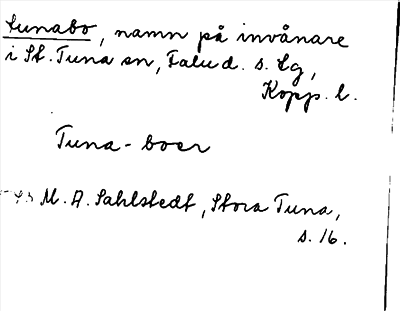 tunabo, namn på invånare
i St. Tuna sn, Falu d. s. lg,
Kopp. l.
Tuna-boer
M. A. Sahlstedt, Stora Tuna,
s. 16.